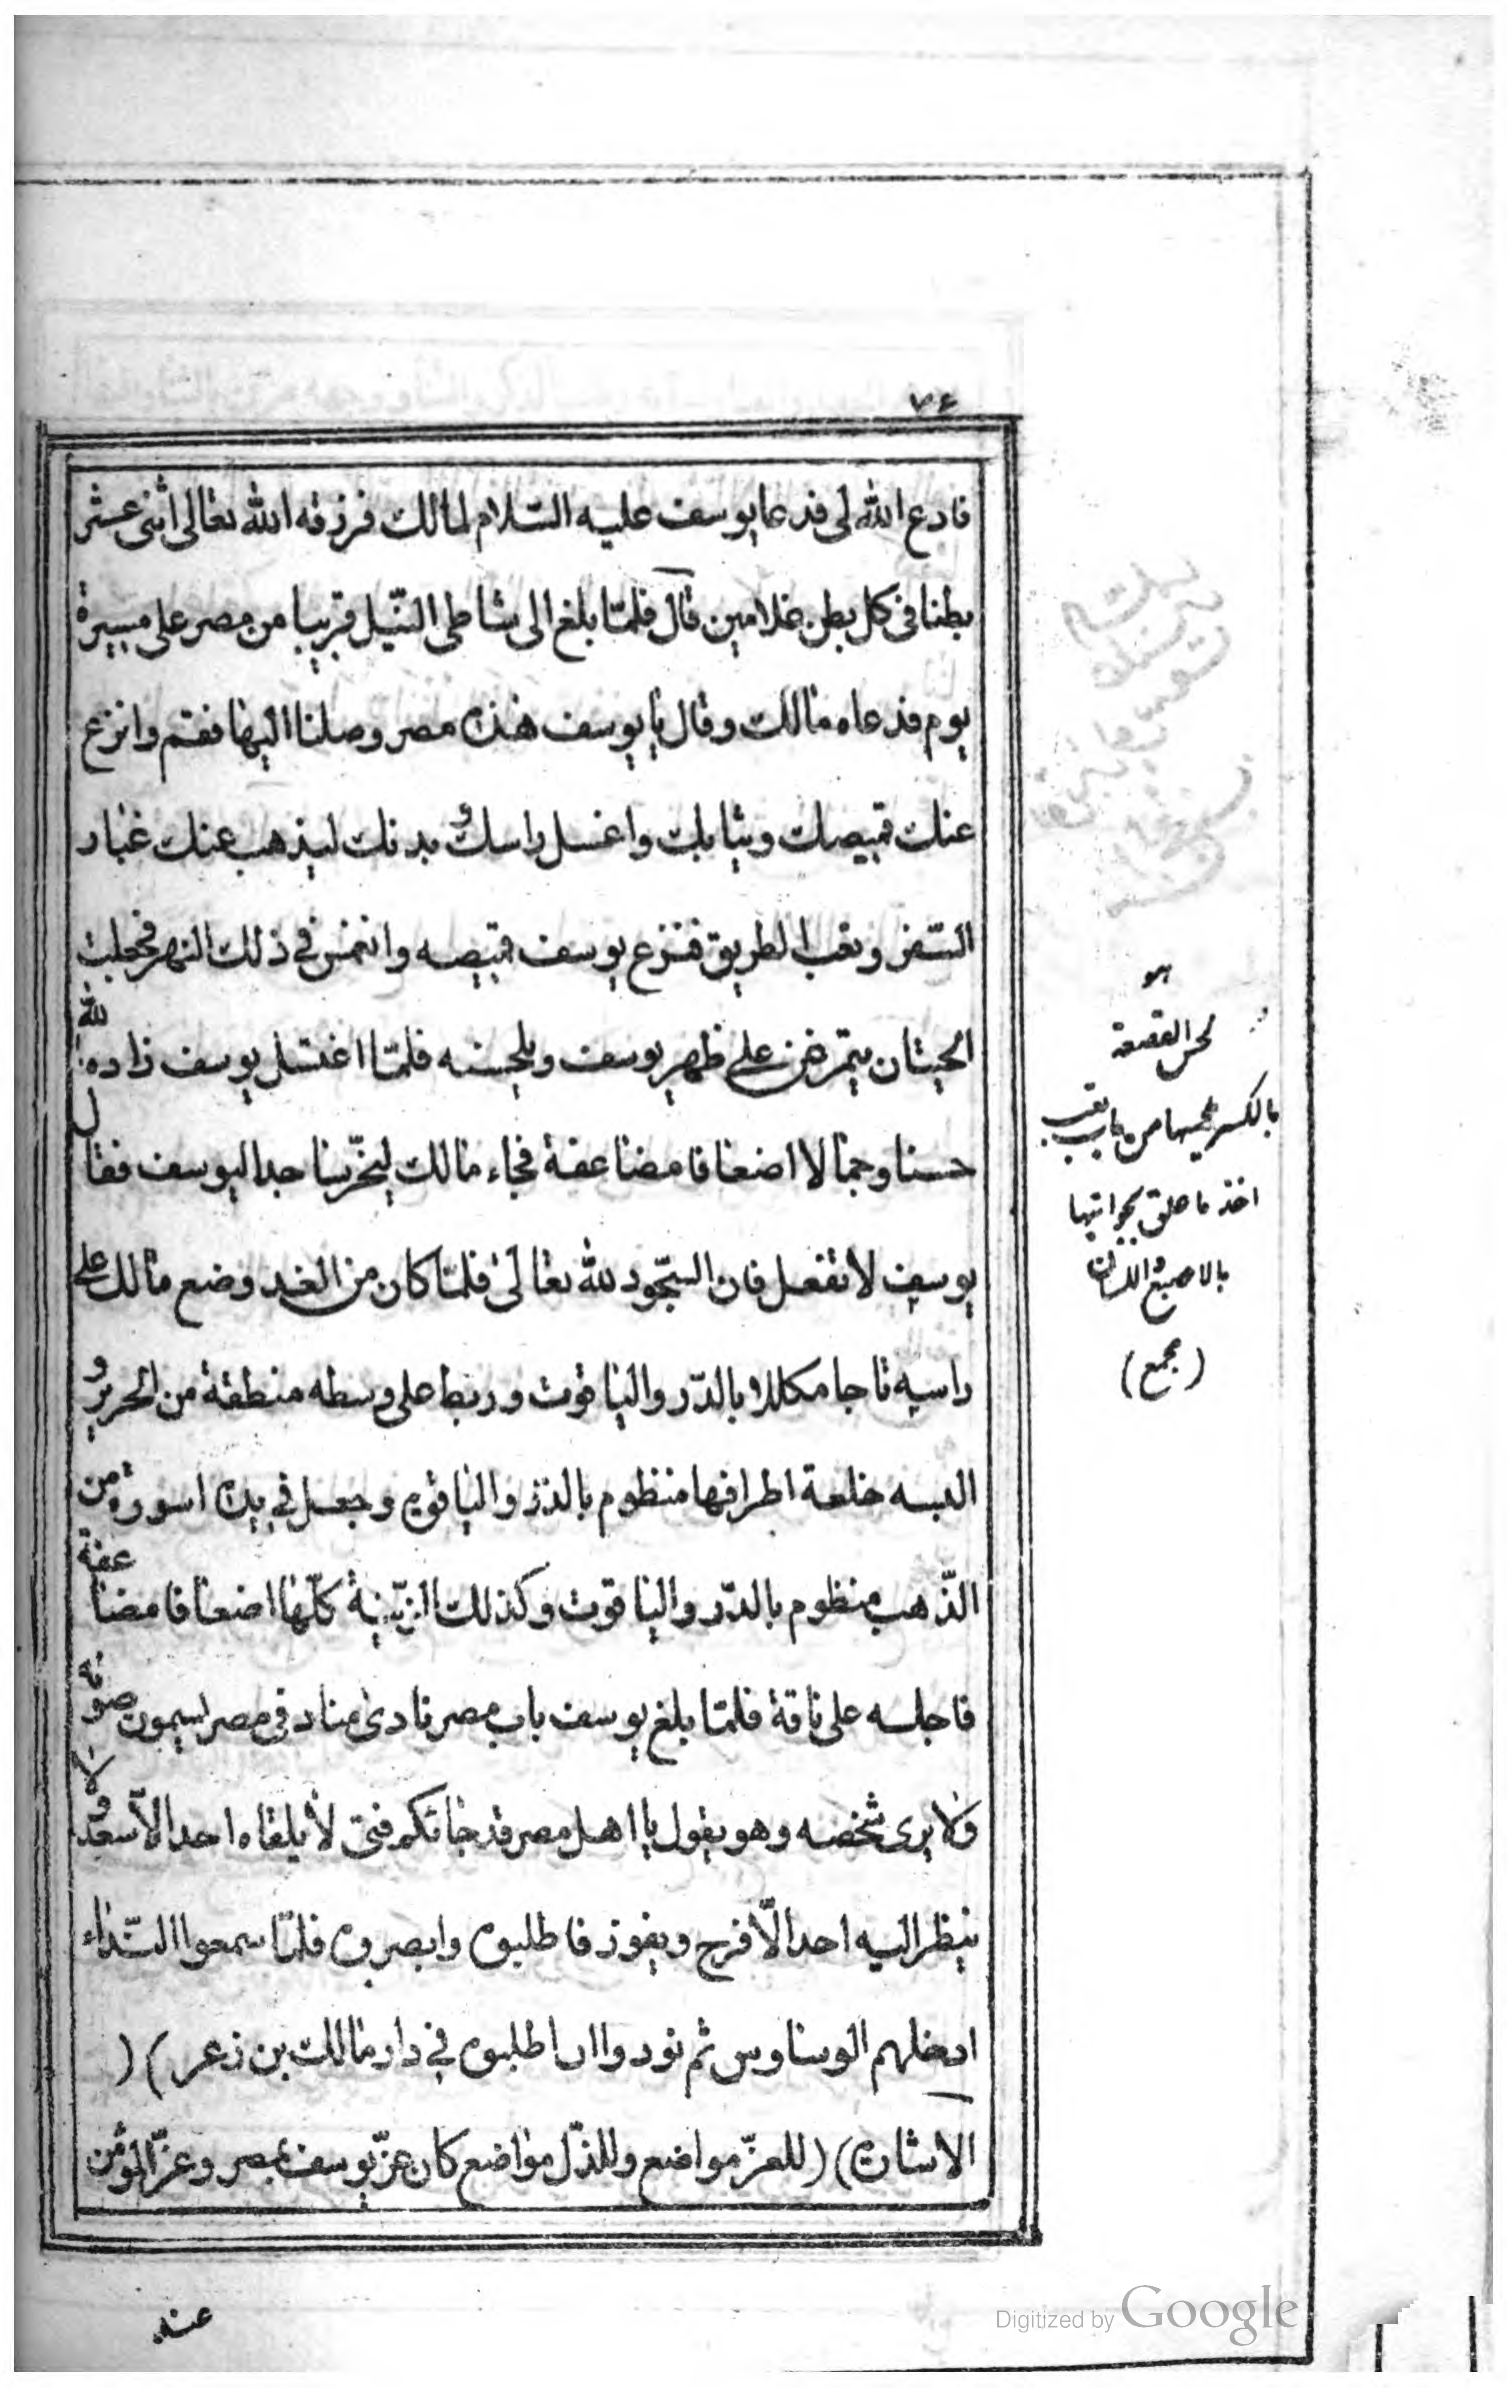 ٧٤
فادع الله لى فدعا يوسف عليه السّلام لمالك فرزقه الله تعالى اثنى عشر
بطنا فى كل بطن غلامين قال فلمّا بلغ الى شاطى النّيل قريبا من مصر على مسيرة
يوم فدعاه مالك وقال يا يوسف هذه مصر وصلنا اليها فقم وانزع
عنك قميصك وثيابك واغسل راسك و بدنك ليذهب عنك غبار
السّفر وتعب الطريق فنزع يوسف قميصه وانغمس فى ذلك النهر فجعلت
الحيتان يتمرغن على ظهر يوسف ويلحسنه فلمّا اغتسل يوسف زاده الله
حسنا وجمالا اضعافا مضاعفة فجاء مالك ليخرّ ساجدا ليوسف فقال
يوسف لا تفعل فان السّجود لله تعالى فلمّا كان من الغد وضع مالك على
راسه تاجا مكللا بالدّر والياقوت وربط على وسطه منطقة من الحرير و
البسه خلعة اطرافها منظوم بالدّر والياقوت وجعل فى يده اسورة من
الذّهب منظوم بالدّر والياقوت وكذلك الزّينة كلّها اضعافا مضاعفة
فاجلسه على ناقة فلمّا بلغ يوسف باب مصر نادى مناد فى مصر يسمعون صوته
ولا يرى شخصه وهو يقول يا اهل مصر قد جائكم فتى لا يلقاه احد الّا سعد ولا
ينظر اليه احد الّا فرح ويفوز فاطلبوه وابصروه فلمّا سمعوا النّداء
ادخلهم الوساوس ثم نودوا ان اطلبوه فى دار مالك بن زعر) (
الاشارة) (للعزّ مواضع وللذّل مواضع كان عزّ يوسف بمصر وعزّ المؤمن
عند
هو
لحس القصعة
بالكسر لحسها من باب تعب
اخذ ما علق بجوانبها
بالاصبع واللسان
(مجمع)
Digitized by Google